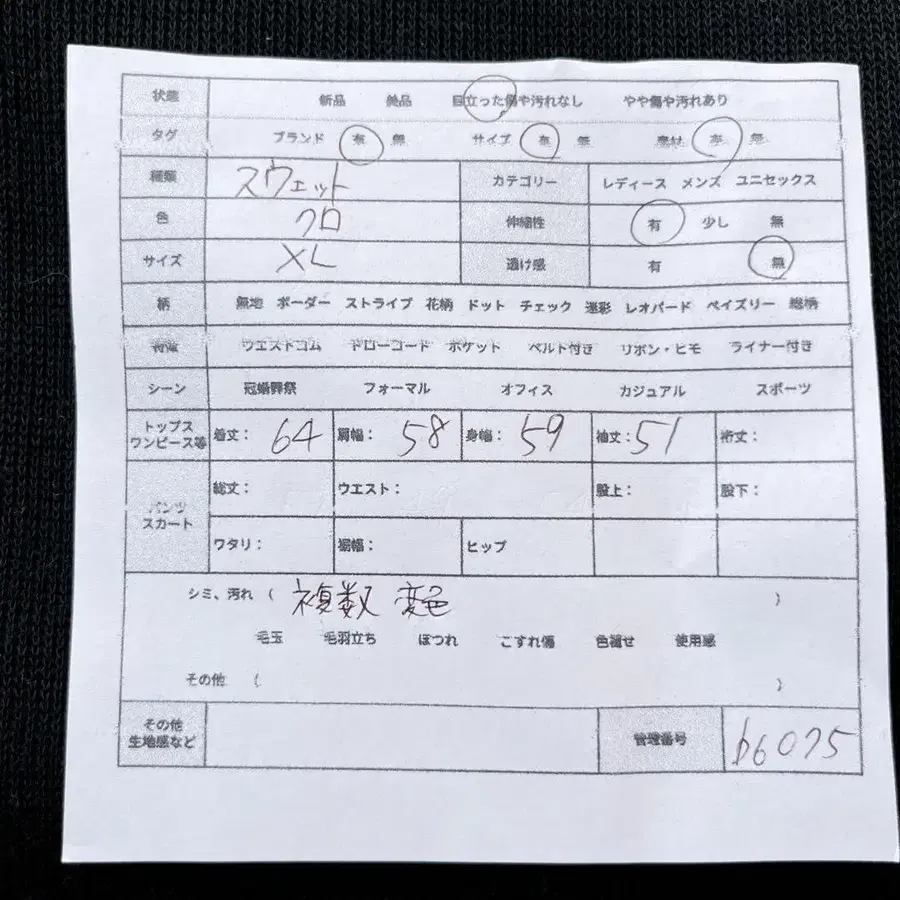 状態 新品 美品 目立った傷や汚れなし やや傷や汚れあり
タグ ブランド 有 無 サイズ 有 無 素材 有 無
種類 スウェット カテゴリー レディース メンズ ユニセックス
色 クロ 伸縮性 有 少し 無
サイズ XL 透け感 有 無
柄 無地 ボーダー ストライプ 花柄 ドット チェック 迷彩 レオパード ペイズリー 総柄
特徴 ウエストゴム ドローコード ポケット ベルト付き リボン・ヒモ ライナー付き
シーン 冠婚葬祭 フォーマル オフィス カジュアル スポーツ
トップス
ワンピース等 着丈: 64 肩幅: 58 身幅: 59 袖丈: 51 裄丈:
パンツ
スカート 総丈: ウエスト: 股上: 股下:
ワタリ: 裾幅: ヒップ
シミ、汚れ ( 複数 変色 )
毛玉 毛羽立ち ほつれ こすれ傷 色褪せ 使用感
その他 ( )
その他
生地感など 管理番号 b6075